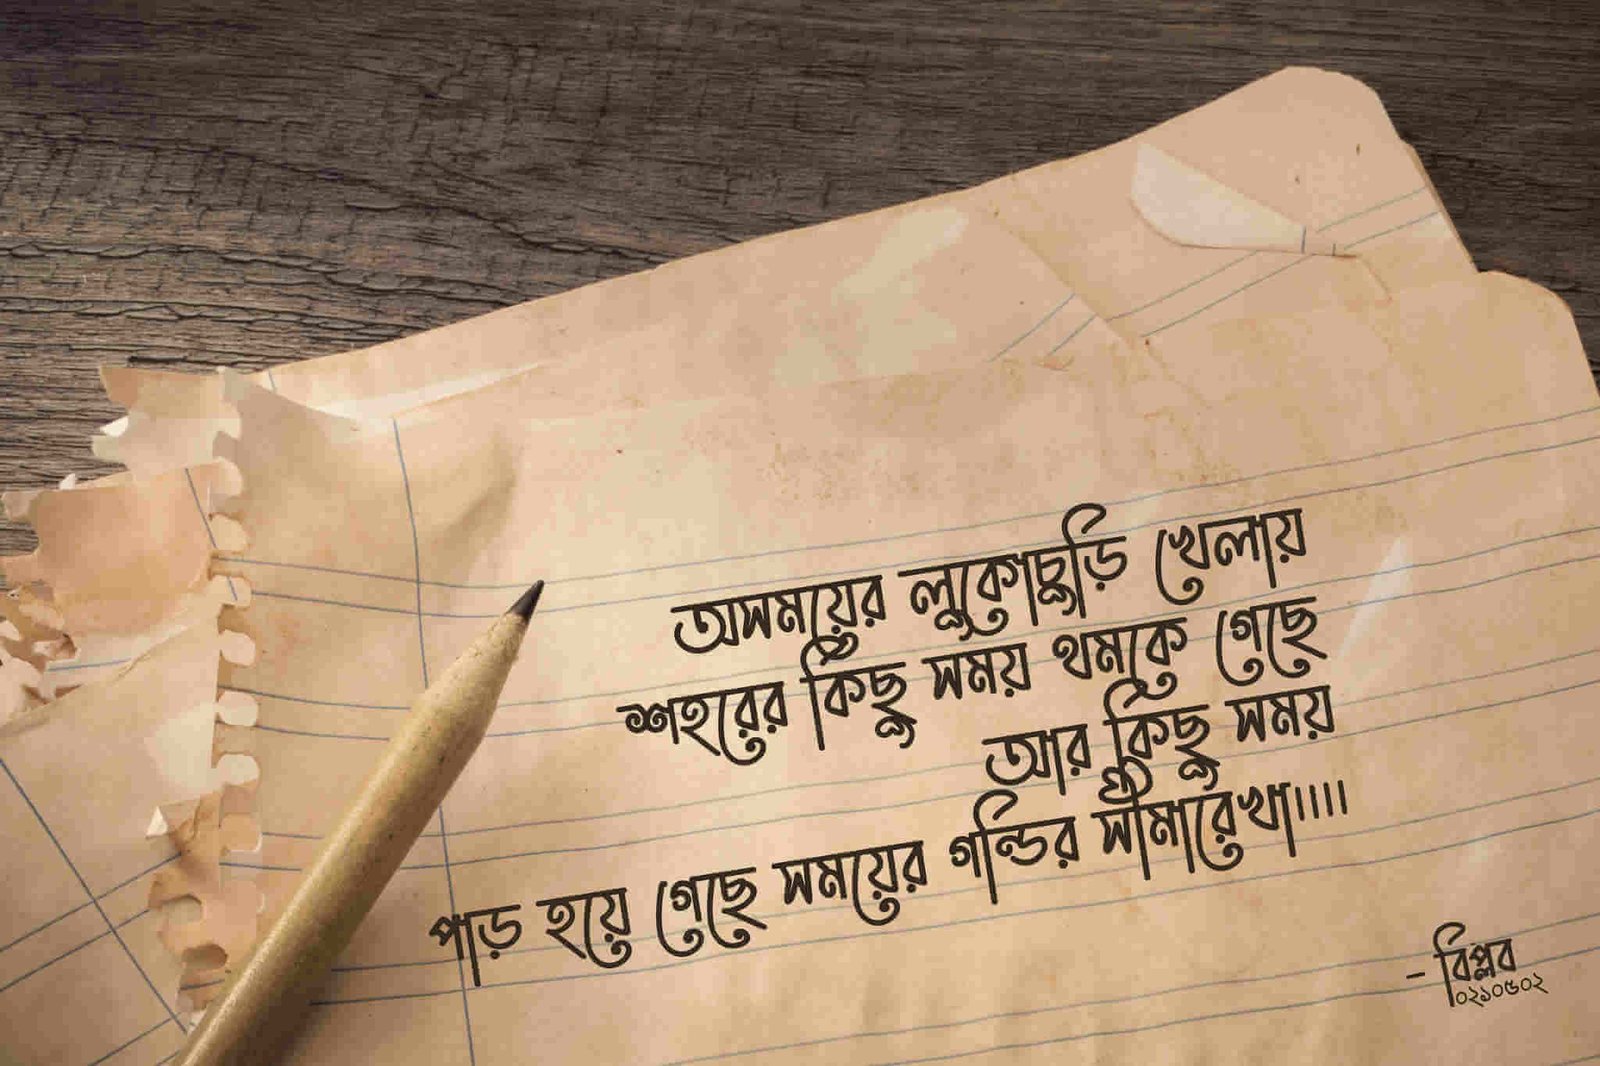 অসময়ের লুকোচুড়ি খেলায়
শহরের কিছু সময় থমকে গেছে
আর কিছু সময়
পাড় হয়ে গেছে সময়ের গন্ডির সীমারেখা।।।।
- বিপ্লব
০২১০৫০২